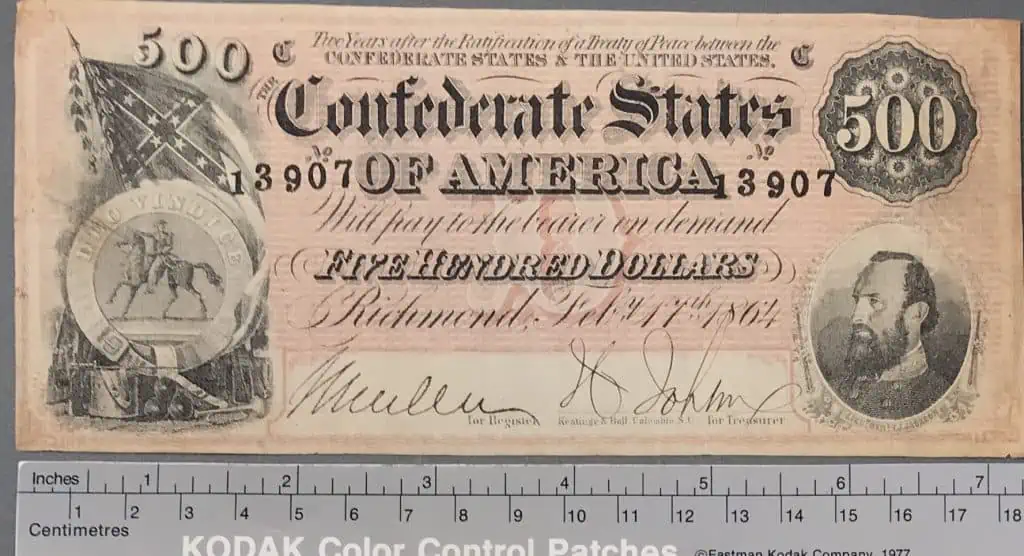 500
C
Two Years after the Ratification of a Treaty of Peace between the
C
CONFEDERATE STATES & THE UNITED STATES,
THE
Confederate States
500
No
No
13907 OF AMERICA 13907
DEO VINDICE
Will pay to the bearer on demand
FIVE HUNDRED DOLLARS
Richmond, Feby. 17th 1864
for Register
Keatinge & Ball Columbia S.C.
for Treasurer
Inches 1 2 3 4 5 6 7
1 2 3 4 5 6 7 8 9 10 11 12 13 14 15 16 17 18
Centimetres
KODAK Color Control Patches
©Eastman Kodak Company, 1977